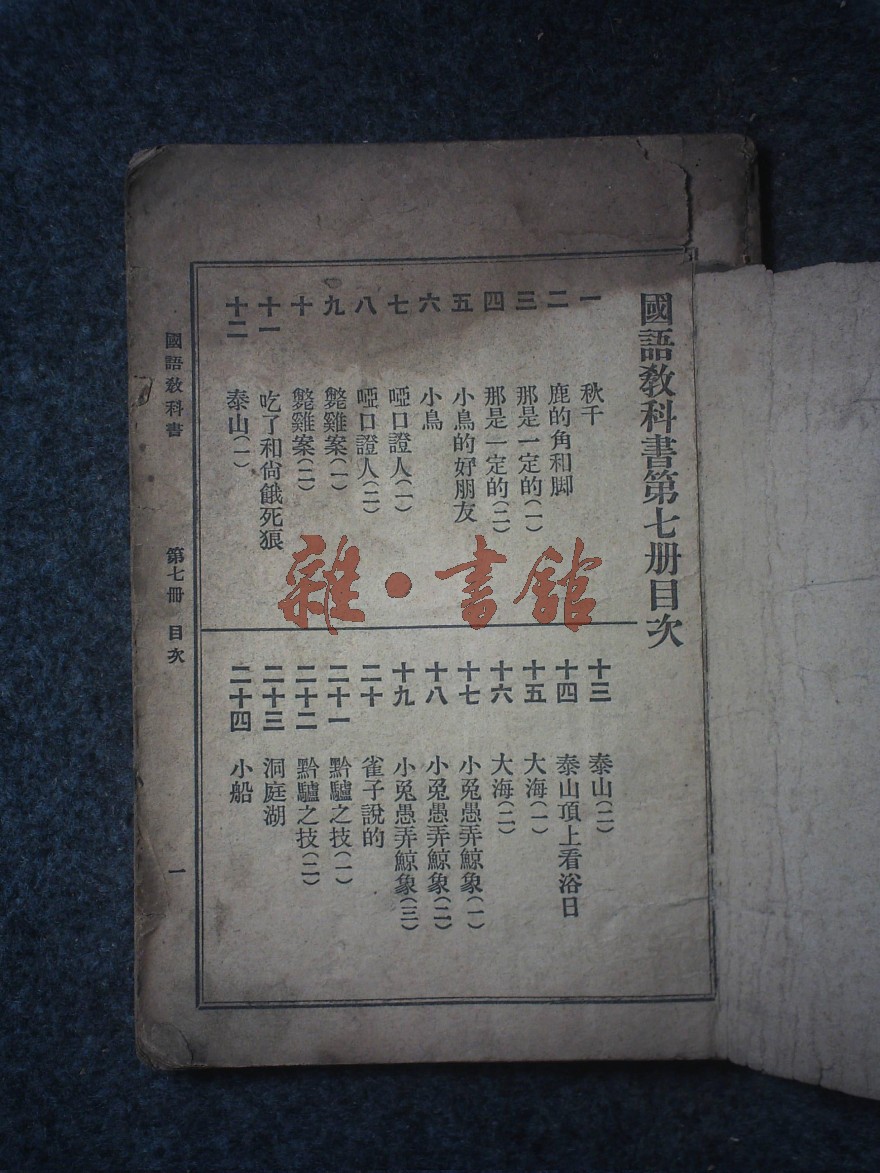 國語教科書第七册目次
一 秋千
二 鹿的角和脚
三 那是一定的(一)
四 那是一定的(二)
五 小鳥的好朋友
六 小鳥
七 啞口證人(一)
八 啞口證人(二)
九 斃雞案(一)
十 斃雞案(二)
十一 吃了和尙餓死狼
十二 泰山(一)
十三 泰山(二)
十四 泰山頂上看浴日
十五 大海(一)
十六 大海(二)
十七 小兔愚弄鯨象(一)
十八 小兔愚弄鯨象(二)
十九 小兔愚弄鯨象(三)
二十 雀子說的
二十一 黔驢之技(一)
二十二 黔驢之技(二)
二十三 洞庭湖
二十四 小船
國語教科書 第七册 目次 一
雜·書館